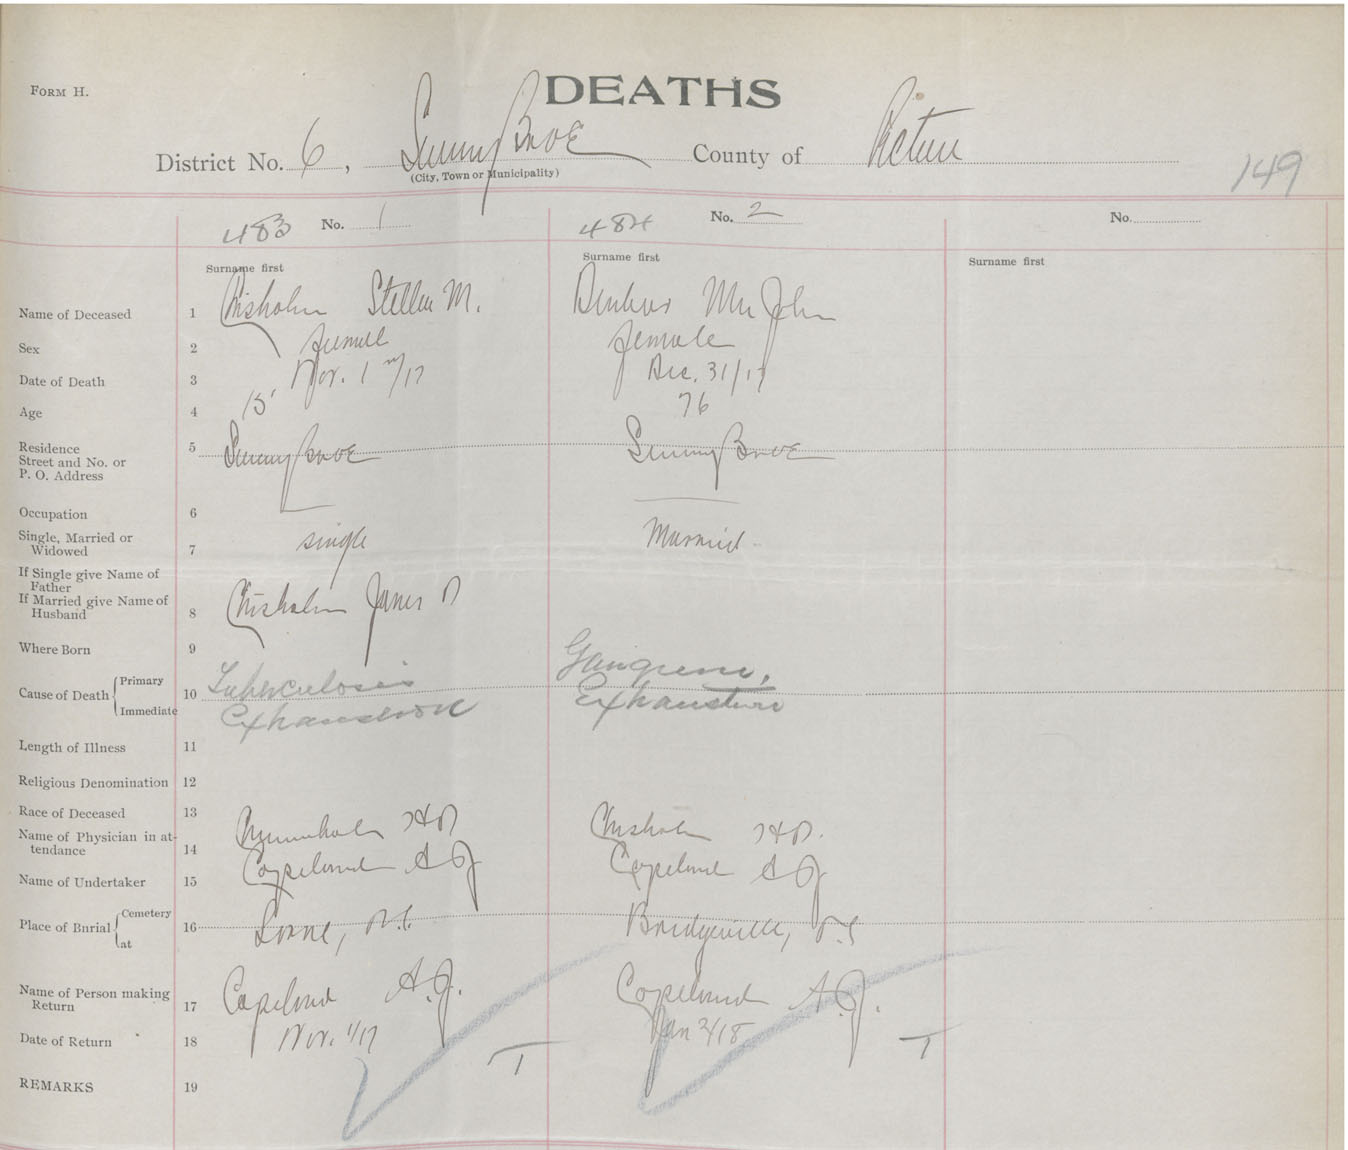 FORM H.
DEATHS
District No. 6, Sunny Brae County of Pictou
(City, Town or Municipality)
149
483 No. 1 484 No. 2 No.
Surname first Surname first Surname first
Name of Deceased 1 Chisholm Stella M. Dunbar Mrs John
Sex 2 female female
Date of Death 3 Nov. 1 /17 Dec. 31/17
Age 4 15 76
Residence Street and No. or P. O. Address 5 Sunny Brae Sunny Brae
Occupation 6
Single, Married or Widowed 7 single Married
If Single give Name of Father
If Married give Name of Husband 8 Chisholm James D
Where Born 9
Cause of Death Primary 10 Tuberculosis Gangrene,
Immediate Exhaustion Exhaustion
Length of Illness 11
Religious Denomination 12
Race of Deceased 13
Name of Physician in attendance 14 HD Chisholm HD.
Name of Undertaker 15 Copeland A J Copeland A J
Place of Burial Cemetery at 16 Lorne, N.S. Bridgeville, N.S
Name of Person making Return 17 Copeland A.J. Copeland A.J.
Date of Return 18 Nov. 1/17 Jan 2/18
T T
REMARKS 19